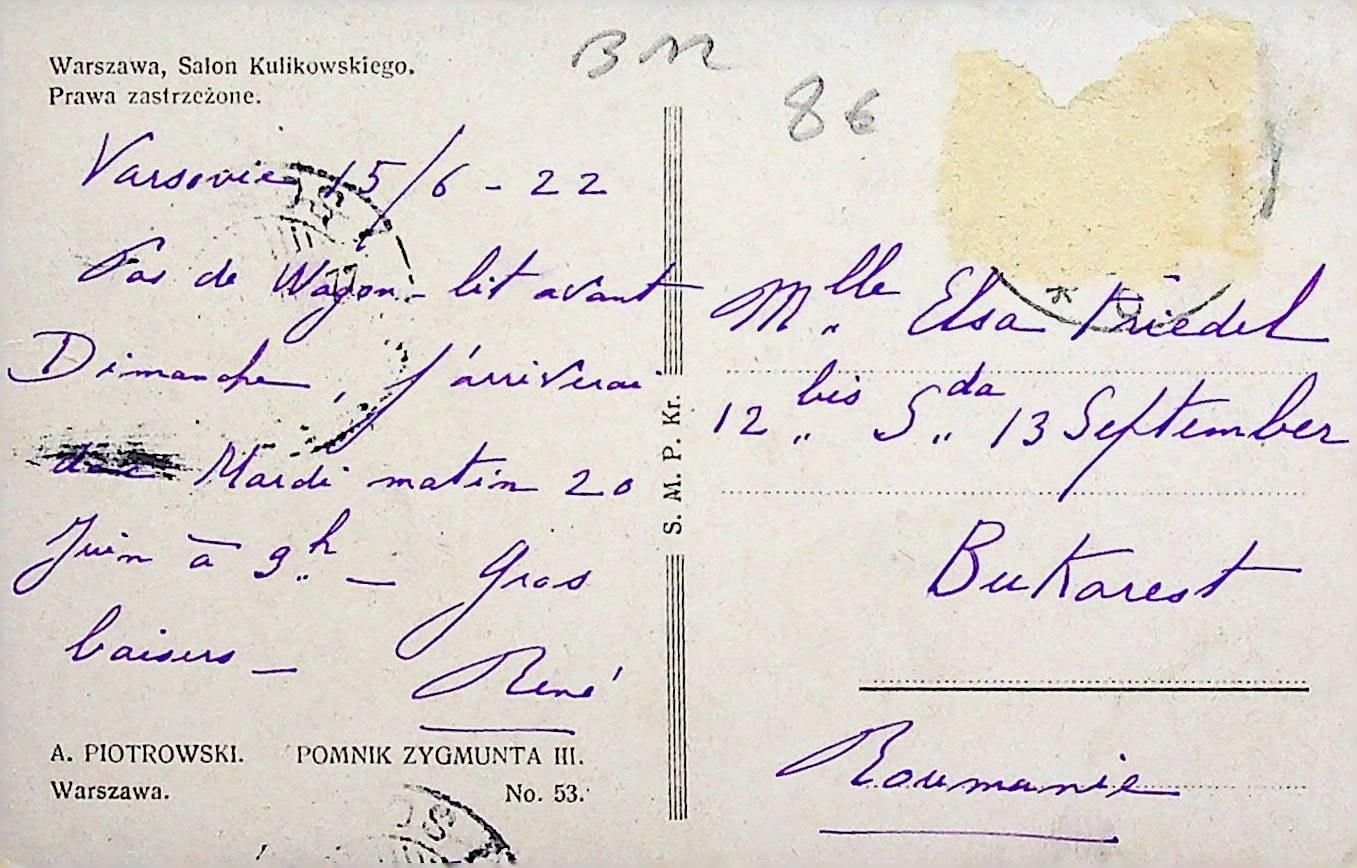 Warszawa, Salon Kulikowskiego.
Prawa zastrzeżone.
BM
86
Varsovie 15/6 - 22
Pas de Wagon-lit avant
Dimanche, j'arriverai
Mardi matin 20
Juin à 9.h — Gros
baisers —
René
A. PIOTROWSKI. POMNIK ZYGMUNTA III.
Warszawa. No. 53.
S. M. P. Kr.
Mlle Elsa Friedel
12 bis Sda 13 September
Bukarest
Roumanie